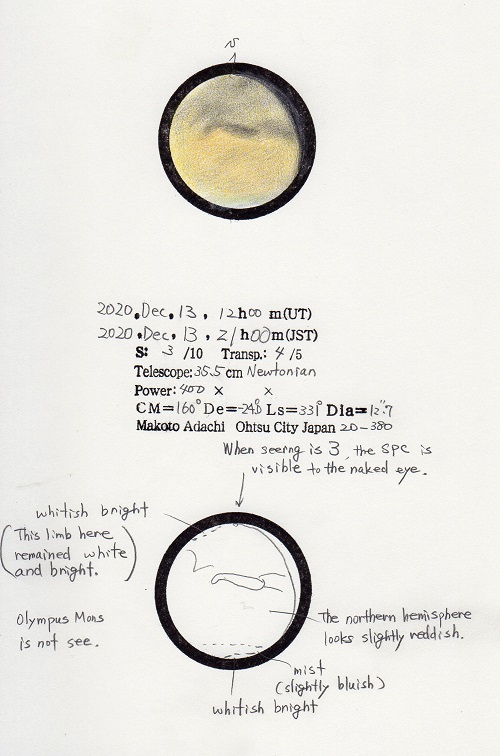 2020. Dec. 13, 12h00 m(UT)
2020. Dec. 13, 21h00m(JST)
S: 3 /10 Transp.: 4 /5
Telescope: 35.5 cm Newtonian
Power: 400 × ×
CM=160° De=-24.0 Ls=331° Dia=12".7
Makoto Adachi Ohtsu City Japan 20-380
When seerng is 3, the SPC is
visible to the naked eye.
whitish bright
(This limb here
remained white
and bright.)
Olympus Mons
is not see.
The northern hemisphere
looks slightly reddish.
mist
(slightly bluish)
whitish bright